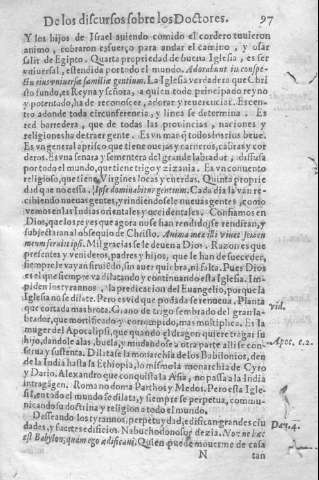 De los discursos sobre los Doctores. 97
Y los hijos de Israel auiendo comido el cordero tuuieron
animo, cobraron esfuerço para andar el camino, y osar
salir de Egipto. Quarta propriedad de buena Iglesia, es ser
vniuersal, estendida por todo el mundo. Adorabunt in conspe-
ctu eius vniuersæ familiæ gentium. La Iglesia verdadera que Chri
sto fundo, es Reyna y señora, a quien todo principado reyno
y potentado, ha de reconoscer, adorar y reuerenciar. Es cen-
tro adonde toda circunferencia, y linea se determina. Es
red barredera, que de todas las prouincias, naciones y
religiones ha de traer gente. Es vn mar q̃ todos los rios beue.
Es vn general aprisco que tiene ouejas y carneros, cabras y cor
deros. Es vna senara y sementera del grande labrador, difusa
por todo el mundo, que tiene trigo y zizania. Es vn conuento
religioso, que tiene Virgines locas y cuerdas. Quinta proprie
dad que no cessa. Ipse dominabitur gentium. Cada dia la van re-
cibiendo nueuas gentes, y rindiendosele nueuas gentes, como
vemos en las Indias orientales y occidentales. Confiamos en
Dios, que los reyes que agora no se han rendido, se rendiran, y
subjectaran al obsequio de Christo. Anima mea illi viuet, & semen
meum seruiet ipsi. Mil gracias se le deuen a Dios. Razon es que
presentes y venideros, padres y hijos, que le han de suceder,
siempre le vayan siruiẽdo, sin auer quiebra, ni falta. Pues Dios
es el que siempre va dilatando y continuando esta Iglesia. Im-
piden los tyrannos, la predicacion del Euangelio, porque la
Iglesia no se dilate. Pero es vid que podada se renueua. Planta
que cortada mas brota. Grano de trigo sembrado del gran la-
brador, que mortificado y corrompido, mas multiplica. Es la
muger del Apocalipsi, que quando el dragon quiere tragar su
hijo, dandole alas, buela, y mudandose a otra parte alli se con-
serua y sustenta. Dilatase la monarchia de los Babilonios, den
de la India hasta la Ethiopia, lo mismo la monarchia de Cyro
y Dario. Alexandro que conquista la Asia, no passa a la India
intragãgen. Roma no doma Parthos y Medos. Pero esta Igle-
sia, en todo el mundo se dilata, y siempre se perpetua, comu-
nicando su doctrina y religion a todo el mundo.
Desseando los tyrannos, perpetuydad, edifican grandes ciu
dades, y fuertes edificios. Nabuchodonosor dezia. Nonne hæc
est Babylon, quam ego ædificaui. Quien puede mouerme de casa
N tan
viss.
Apoc. 12.
Dan. 4.